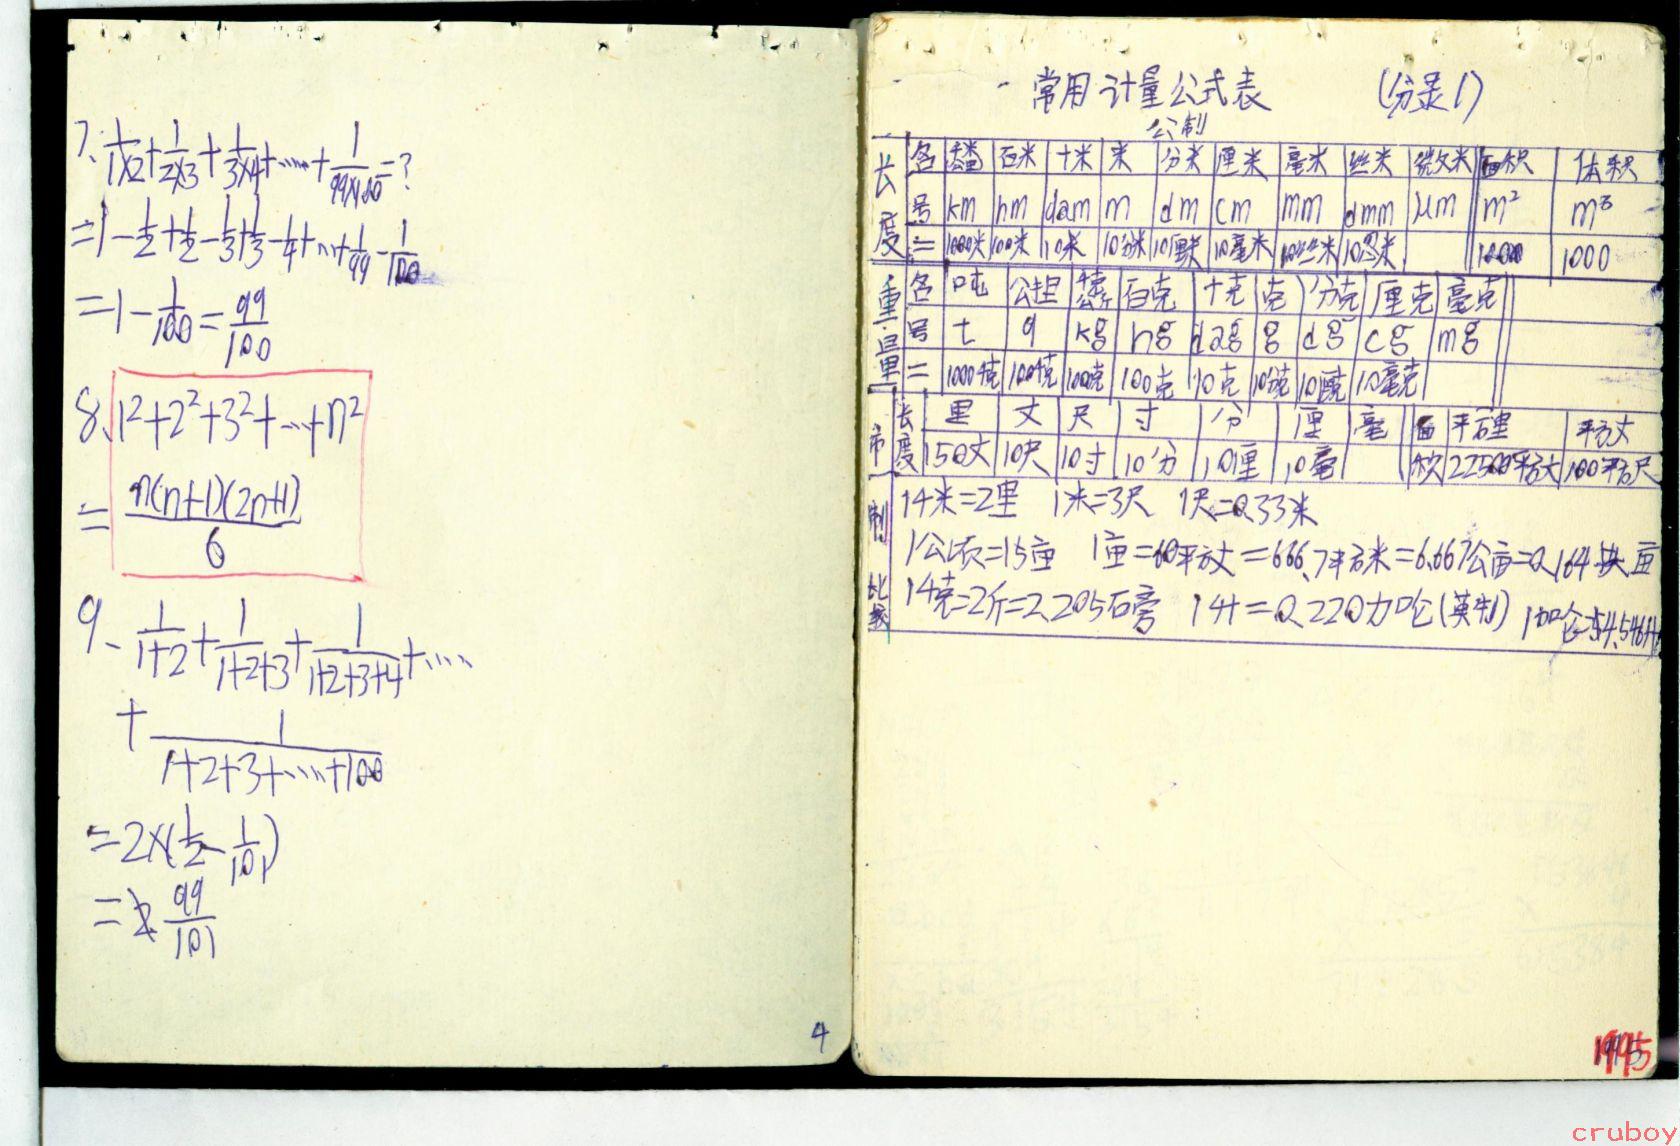 7、1/1×2+1/2×3+1/3×4+……+1/99×100=?
=1-1/2+1/2-1/3+1/3-1/4+…+1/99-1/100
=1-1/100=99/100
8、1²+2²+3²+…+n²
=n(n+1)(2n+1)/6
9、1/1+2+1/1+2+3+1/1+2+3+4+……
+1/1+2+3+……+100
=2×(1/2-1/101)
=99/101
4
常用计量公式表 (分录1)
公制
长度 名 百米 十米 米 分米 厘米 毫米 丝米 微米 面积 体积
号 km hm dam m dm cm mm dmm μm m² m³
= 1000米 100米 10米 10分米 10厘米 10毫米 10丝米 1000
重量 名 吨 公担 百克 十克 克 分克 厘克 毫克
号 t q kg hg dag g dg cg mg
= 1000千克 100千克 100克 10克 10分克 10厘克 10毫克
市制 长度 里 丈 尺 寸 分 厘 毫 面积 平方里 平方丈
150丈 10尺 10寸 10分 10厘 10毫 22500平方丈 100平方尺
1千米=2里 1米=3尺 1尺=0.33米
1公顷=15亩 1亩=60平方丈=666.7平方米=6.667公亩=0.164英亩
比较 1千克=2斤=2.205石膏 1升=0.220加伦(英制) 1加仑=4.546升
1995
cruboy